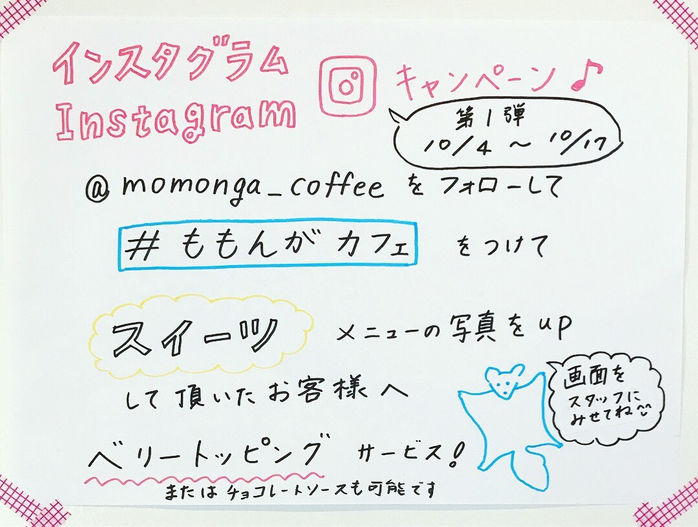 インスタグラム
Instagram
キャンペーン♪
第1弾
10/4 ~ 10/17
@momonga_coffee を フォローして
#ももんがカフェ をつけて
スイーツ メニューの写真をup
して頂いたお客様へ
画面を
スタッフに
みせてね
ベリートッピング サービス!
またはチョコレートソースも可能です